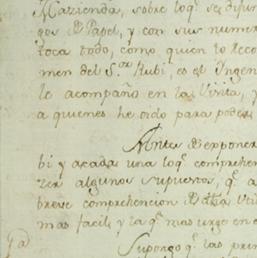 Hazienda, sobre loq.e se difun
gos D Papel, y con sus numer
toca todo, como quien lo reco
men del S.or Rubi, es el Ingen
le acompaño en la Visita, y
a quienes he oido para poder
Antes D exponer
bi y acada una loq.e comprehen
zer algunos supuestos, q.e a
breve comprehencion D
mas facil, y la q.e mas urge en e
Supongo q.e las prim